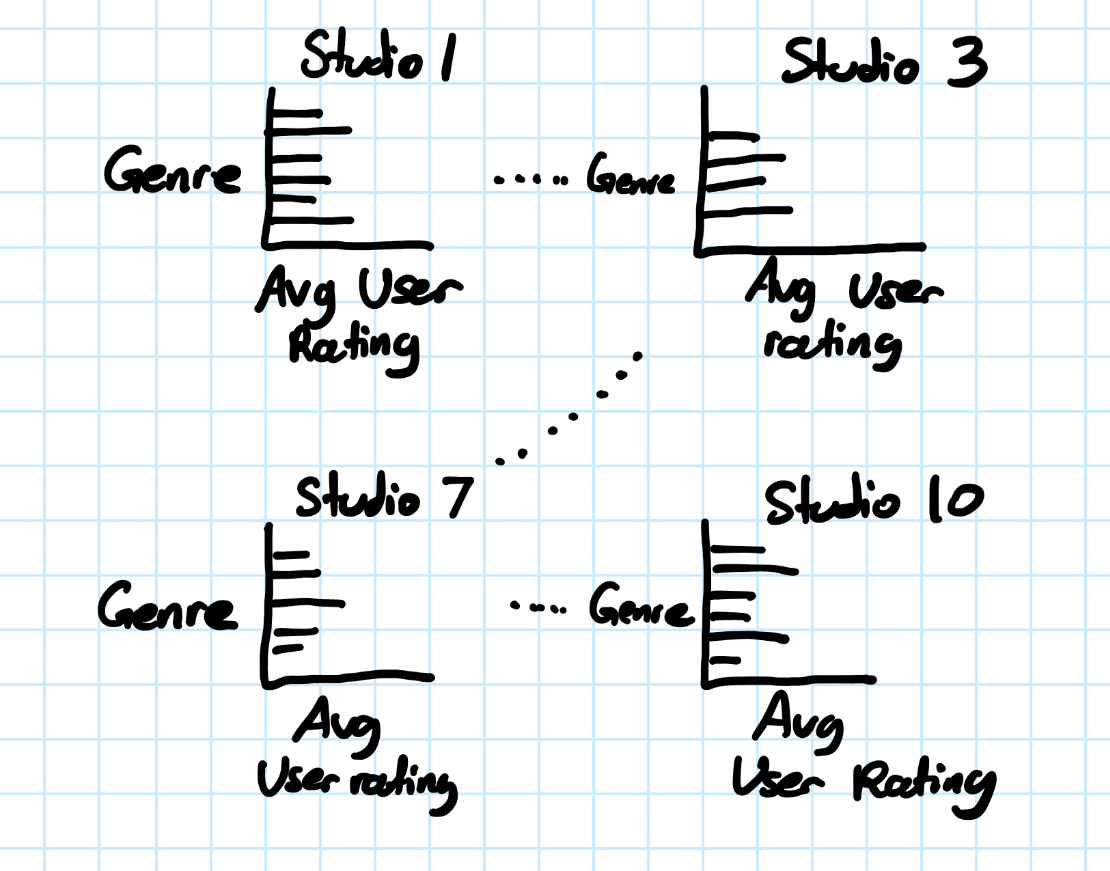 Studio 1
Genre
Avg User
Rating
Studio 3
Genre
Avg User
rating
Studio 7
Genre
Avg
User rating
Studio 10
Genre
Avg
User Rating